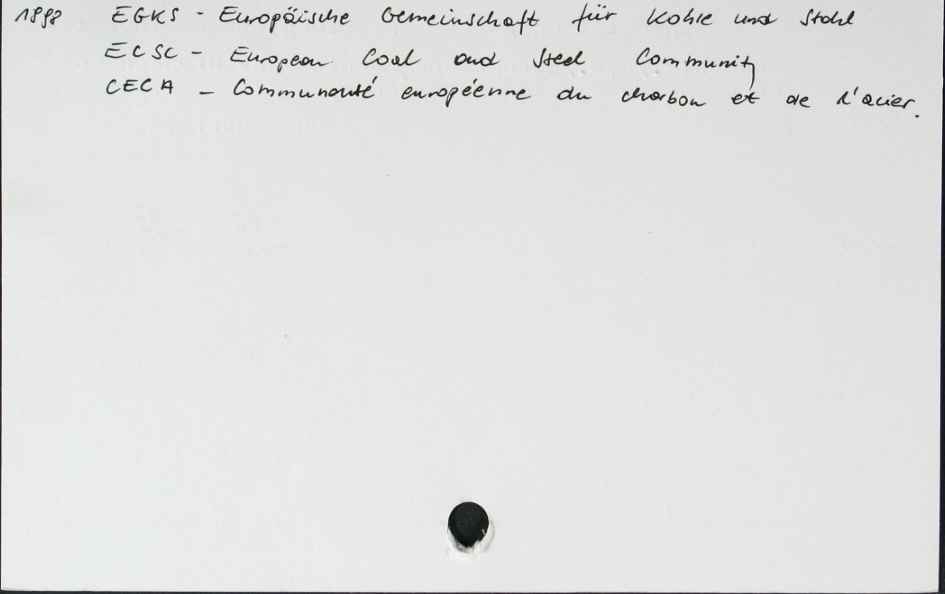 1998 EGKS - Europäische Gemeinschaft für Kohle und Stahl
ECSC - European Coal and Steel Community
CECA - Communauté européenne du charbon et de l'acier.